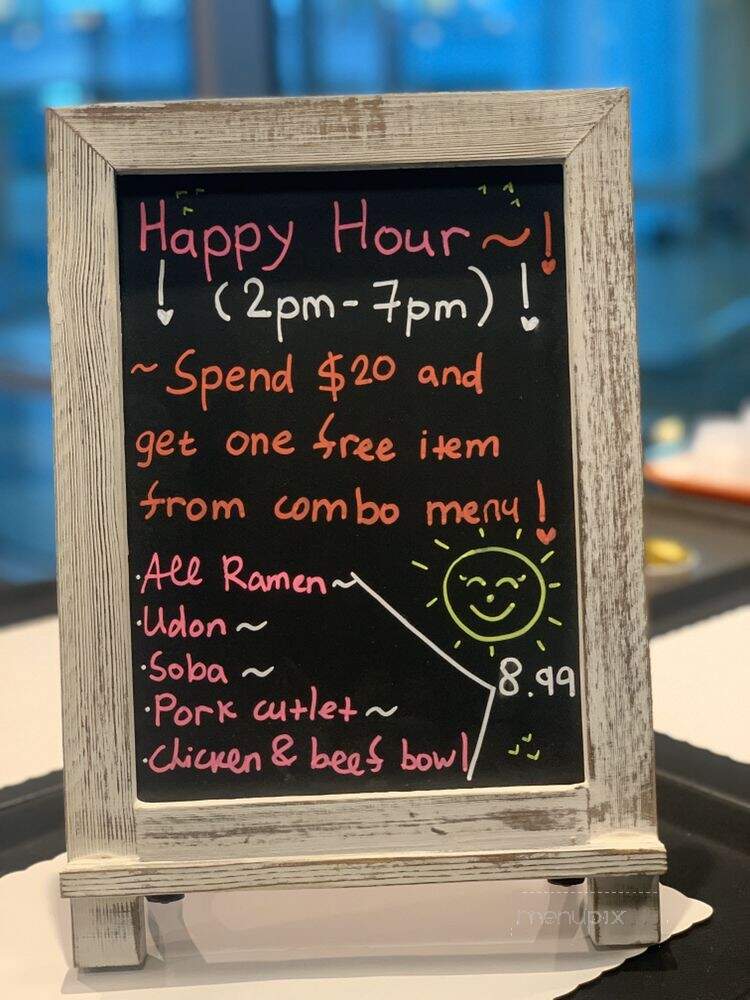 Happy Hour ~!
! (2pm-7pm) !
~Spend $20 and
get one free item
from combo menu!
·All Ramen~
·Udon~
·Soba~
8.99
·Pork cutlet~
·Chicken & beef bowl
menupix